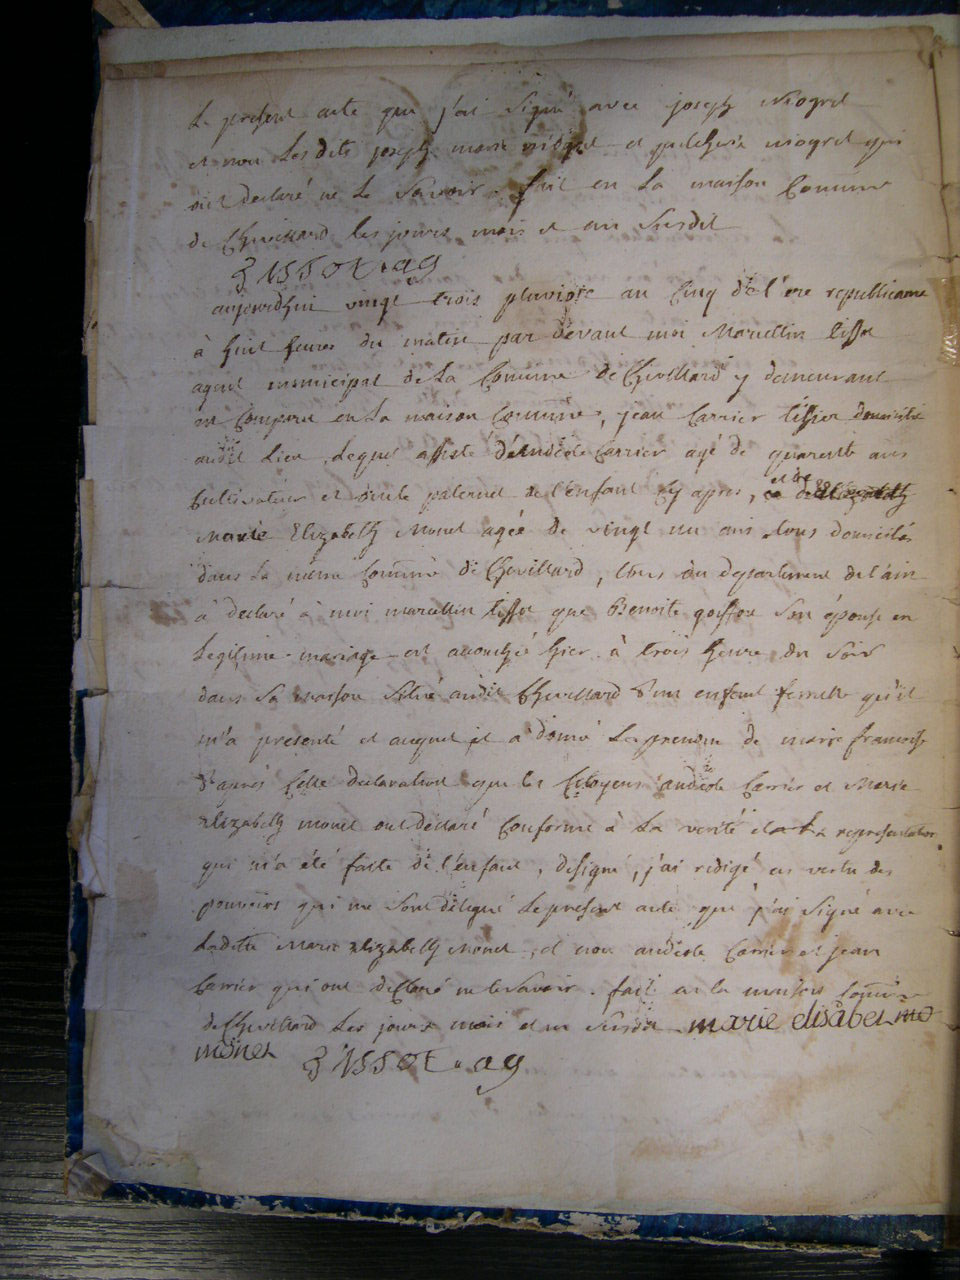 Le présent acte que j'ai signé avec joseph niogret
et non Lesdits joseph marie niogret et niogret qui
ont declaré ne le savoir. fait en La maison Comune
de Chevillard les jours mois et an susdit
Tissot. ag
aujourdhui vingt trois pluviose au Cinq de l'ere republicaine
à huit heures du matin par devant moi Marcellin tissot
agent municipal de La Comune de Chevillard y demeurant
est Comparu en La maison Comune, jean Carrier tissier domicilié
audit Lieu, Lequel assisté d'andéole Carrier agé de quarente ans
Cultivateur et oncle paternel de l'enfant Cy apres, et de
Marie Elizabeth Monet agée de vingt un ans tous domiciliés
dans La même Comune de Chevillard, du departement de l'ain
à declaré à moi marcellin tissot que Benoite goiffon son épouse en
Legitime mariage est accouchée hier à trois heure du soir
dans sa maison situé audit Chevillard d'un enfant femelle qu'il
m'a presenté et auquel il a donné Le prenom de marie francoise
d'après Cette declaration que les Citoyens andéole Carrier et Marie
Elizabeth monet ont declaré Conforme à La verité et a La representation
qui m'a été faite de l'enfant, designé, j'ai redigé en vertu des
pouvoirs qui me sont delegué Le présent acte que j'ai signé avec
Ladite Marie Elizabeth Monet, et non andéole Carrier et jean
Carrier qui ont declaré ne le savoir. fait en la maison Comune
de Chevillard Les jours mois et an susdit marie elisabet mo
monet Tissot. ag